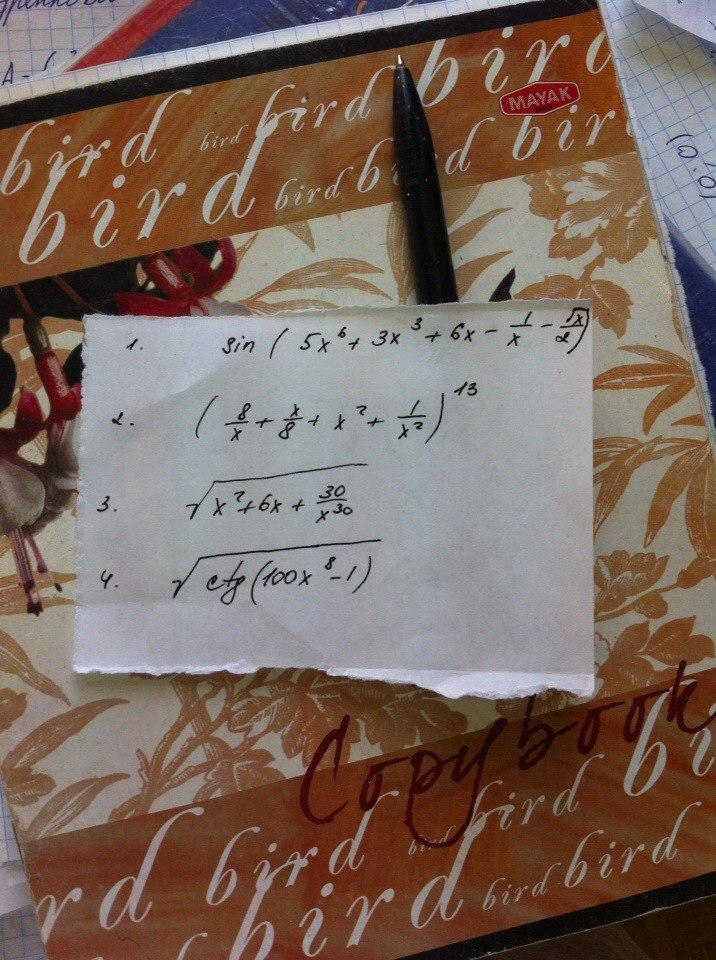 bird bird bird bird
MAYAK
bird bird bird bird
1. sin ( 5x⁶ + 3x³ + 6x - 1/x - √x/2 )
2. ( 8/x + x/8 + x² + 1/x² )¹³
3. √(x² + 6x + 30/x³⁰)
4. √(ctg (100x⁸ - 1))
Copybook
bird bird bird bi
rd bird bird bird